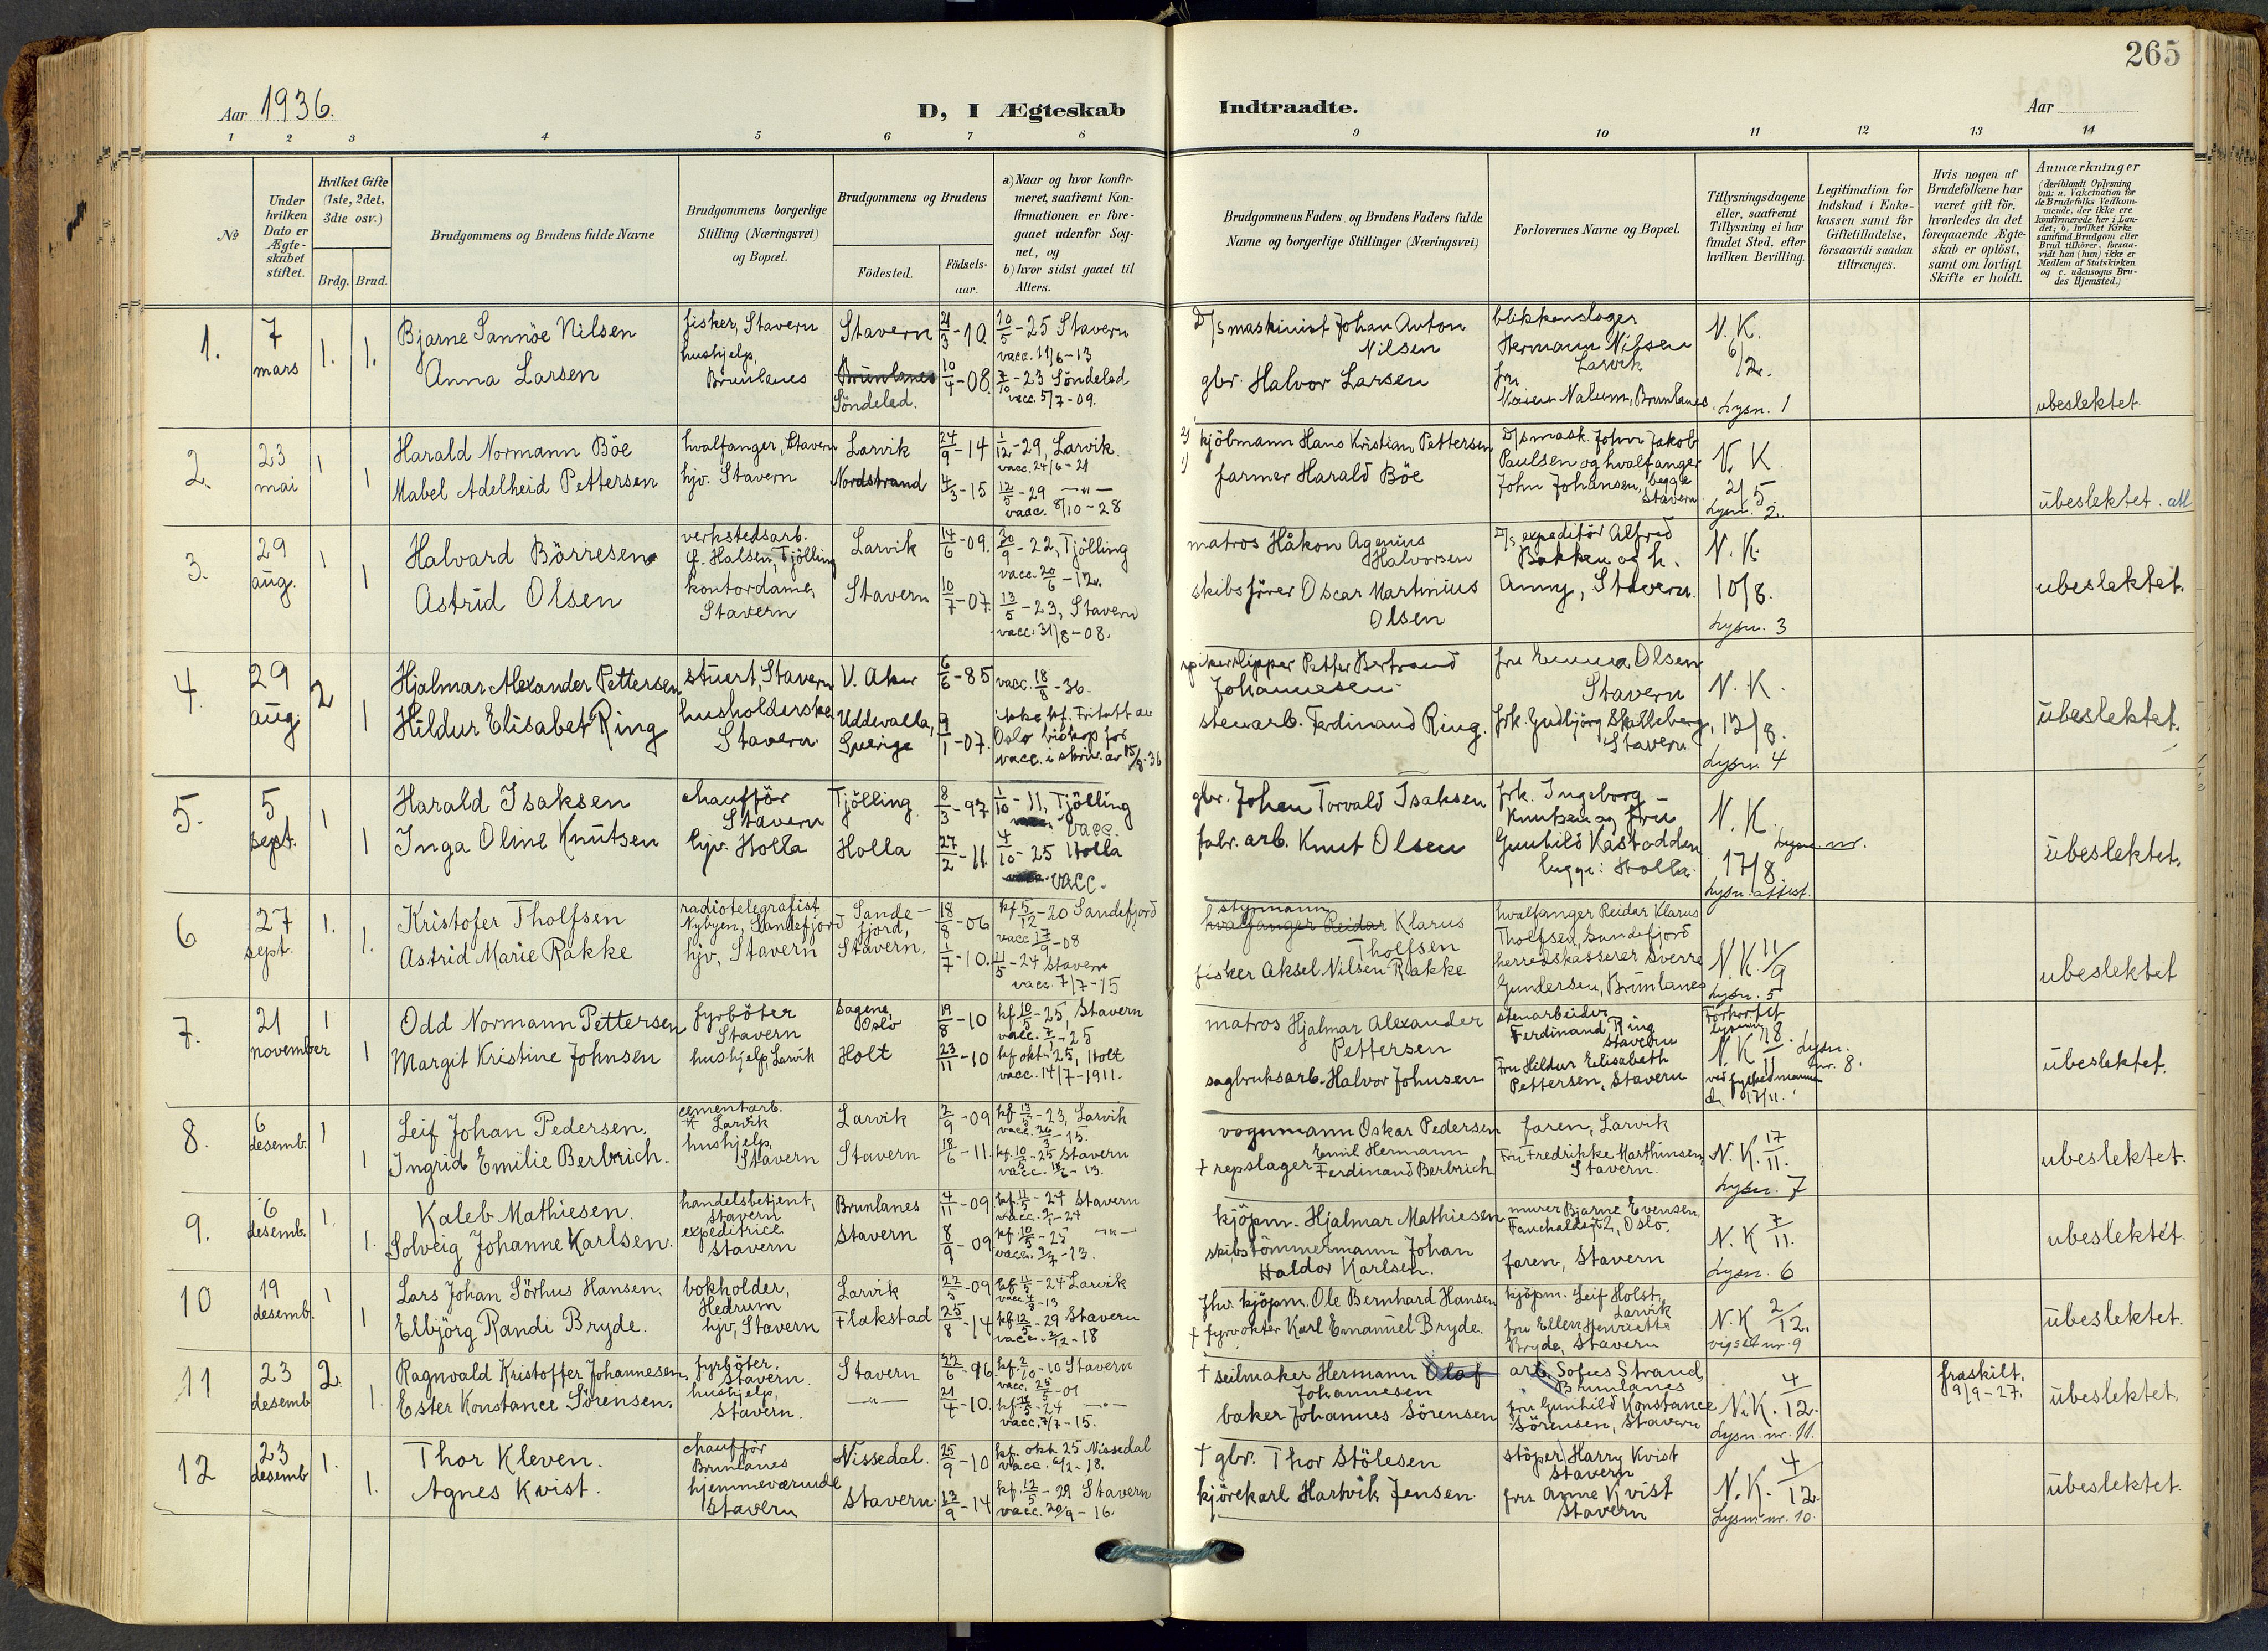 265
Aar 1936.
D, I Ægteskab Indtraadte.
Aar
1 2 3 4 5 6 7 8 9 10 11 12 13 14
№
Under hvilken Dato er Ægteskabet stiftet.
Hvilket Gifte (1ste, 2det, 3die osv.)
Brdg. Brud.
Brudgommens og Brudens fulde Navne
Brudgommens borgerlige Stilling (Næringsvei) og Bopæl.
Brudgommens og Brudens
Fødested.
Fødselsaar.
a) Naar og hvor konfirmeret, saafremt Konfirmationen er foregaaet udenfor Sognet, og
b) hvor sidst gaaet til Alters.
Brudgommens Faders og Brudens Faders fulde Navne og borgerlige Stillinger (Næringsvei)
Forlovernes Navne og Bopæl.
Tillysningsdagene eller, saafremt Tillysning ei har fundet Sted, efter hvilken Bevilling.
Legitimation for Indskud i Enkekassen samt for Giftetilladelse, forsaavidt saadan tiltrænges.
Hvis nogen af Brudefolkene har været gift før, hvorledes da det foregaaende Ægteskab er opløst, samt om lovligt Skifte er holdt.
Anmærkninger
(deriblandt Oplysning om: a. Vakcination for de Brudefolks Vedkommende, der ikke ere konfirmerede her i Landet; b. hvilket Kirkesamfund Brudgom eller Brud tilhører, forsaavidt han (hun) ikke er Medlem af Statskirken og c. udensogns Brudes Hjemsted.)
1. 7 mars 1. 1.
Bjarne Sannöe Nilsen
fisker, Stavern
Stavern 21/3-10
10/5-25 Stavern
vacc. 11/6-13
D/s maskinist Johan Anton Nilsen
blikkenslager Hermann Nilsen Larvik
N.K. 6/2.
Anna Larsen
hushjelp, Brunlanes
Brunlanes Söndeled. 10/4-08.
7/10-23 Söndeled
vacc. 5/7-09.
gbr. Halvor Larsen
fru Nalum, Brunlanes.
Lysn. 1
ubeslektet.
2. 23 mai 1 1
Harald Normann Böe
hvalfanger, Stavern
Larvik 24/9-14
1/12-29, Larvik.
vacc. 24/6-21
2) kjöbmann Hans Kristian Pettersen
D/s mask. John Jakob Paulsen og hvalfanger John Johansen, begge Stavern
N.K. 2/5
Mabel Adelheid Pettersen
hjv. Stavern
Nordstrand 4/3-15
12/5-29 —"—
vacc. 8/10-28
1) farmer Harald Böe
Lysn. 2.
ubeslektet.
3. 29 aug. 1 1
Halvard Börresen
verkstedsarb. Halsen, Tjölling
Larvik 14/6-09.
30/9-22, Tjölling
vacc. 20/6-12.
matros Håkon Agenius Halvorsen
D/s expeditör Alfred Bakken og h. Anny, Stavern.
N.K. 10/8.
Astrid Olsen
kontordame, Stavern
Stavern 10/7-07.
13/5-23, Stavern
vacc. 31/8-08.
skibsförer Oscar Martinius Olsen
Lysn. 3
ubeslektet.
4. 29 aug. 2 1
Hjalmar Alexander Pettersen
stuert, Stavern
V. Aker 6/6-85
vacc. 18/8-36.
Petter Bertrand Johannesen
fru Emma Olsen Stavern
N.K.
Hildur Elisabet Ring
husholderske Stavern
Uddevalla, Sverige 9/1-07.
ikke kf. Fritatt av Oslo biskop for vacc. i skriv. av 15/8-36
stenarb. Ferdinand Ring.
frk. Gudbjörg Skalleberg, Stavern
12/8.
Lysn. 4
ubeslektet.
5. 5 sept. 1 1
Harald Isaksen
chaufför Stavern
Tjölling 8/3-97
1/10-11, Tjölling
vacc.
gbr. Johan Torvald Isaksen
frk. Ingeborg Knutsen og fru Gunhild Kastodden begge: Holla.
N.K. 17/8
Inga Oline Knutsen
hjv. Holla
Holla 27/2-11.
4/10-25 Holla
vacc.
fabr. arb. Knut Olsen
Lysn. attest.
ubeslektet.
6 27 sept. 1. 1.
Kristofer Tholfsen
radiotelegrafist Nybyen, Sandefjord
Sandefjord, 18/8-06
kf 5/12-20 Sandefjord
vacc 17/9-08
styrmann hvalfanger Reidar Klarus Tholfsen
hvalfanger Reidar Klarus Tholfsen, Sandefjord
Astrid Marie Rakke
hjv, Stavern
Stavern. 1/7-10.
11/5-24 Stavern
vacc. 7/7-15
fisker Aksel Nilsen Rakke
herredskasserer Sverre Gundersen, Brunlanes
N.K. 11/9
Lysn. 5
ubeslektet
7. 21 november 1 1
Odd Normann Pettersen
fyrböter Stavern
Sagene, Oslo 19/8-10
kf. 10/5-25, Stavern
vacc. 7/1-25
matros Hjalmar Alexander Pettersen
stenarbeider Ferdinand Ring Stavern
Forkortet lysning
N.K. 18/11 Lysn. nr. 8.
Margit Kristine Johnsen
hushjelp, Larvik
Holt 23/11-10
kf. okt. 25, Holt
vacc. 14/7-1911.
sagbruksarb. Halvor Johnsen
Fru Hildur Elisabeth Pettersen, Stavern
17/11.
ubeslektet.
8. 6 desemb. 1 1
Leif Johan Pedersen.
cementarb. Larvik
Larvik 2/9-09
kf. 13/5-23, Larvik
vacc. 26/3-15.
vognmann Oskar Pedersen
faren, Larvik
Ingrid Emilie Berbrich.
hushjelp, Stavern
Stavern 18/6-11.
kf. 10/5-25 Stavern
† repslager Emil Hermann Ferdinand Berbrich
Fru Fredrikke Marthinsen, Stavern.
N.K. 17/11.
Lysn. 7
ubeslektet.
9. 6 desemb. 1. 1.
Kaleb Mathiesen.
handelsbetjent, Stavern
Brunlanes 4/11-09
kf. 11/5-24 Stavern
kjöpm. Hjalmar Mathiesen
murer Bjarne Evensen, Oslo.
Solveig Johanne Karlsen.
expeditrice Stavern
Stavern 8/9-09
kf 10/5-25 —"—
skibstömmermann Johan Haldor Karlsen.
faren, Stavern
N.K. 7/11.
Lysn. 6
ubeslektet.
10 19 desemb. 1 1
Lars Johan Sörhus Hansen.
bokholder, Hedrum
Larvik 22/5-09
kf. 11/5-24 Larvik
fhv. kjöpm. Ole Bernhard Hansen
kjöpm. Leif Holst, Larvik
Elbjörg Randi Bryde.
hjv, Stavern
Flakstad 25/8-14
kf. 12/5-29 Stavern
† fyrvokter Karl Emanuel Bryde.
fru Ellen Henriette Bryde, Stavern
N.K 2/12.
nr. 9
ubeslektet.
11 23 desemb 2. 1.
Ragnvald Kristoffer Johannesen,
fyrböter. Stavern.
Stavern 22/6-96
kf. 2/10-10 Stavern
vacc. 25/5-01
† seilmaker Hermann Olaf Johannesen
arb. Sofus Strand, Brunlanes
Ester Konstance Sörensen.
hushjelp, Stavern.
—"— 21/4-10.
kf. 11/5-24 —"—
vacc. 7/7-15.
baker Johannes Sörensen
fru Gunhild Konstance Sörensen, Stavern
N.K. 4/12.
Lysn. nr. 11.
fraskilt. 9/9-27.
ubeslektet.
12 23 desemb 1. 1.
Thor Kleven.
chaufför Brunlanes
Nissedal. 25/9-10
kf. okt. 25 Nissedal
† gbr. Thor Stölesen
stöper Harry Kvist Stavern
Agnes Kvist.
hjemmeværende Stavern
Stavern. 13/9-14
kf. 12/5-29 Stavern
vacc. 20/9-16.
kjörekarl Hartvik Jensen.
fru Anne Kvist Stavern
N.K. 4/12.
Lysn. nr. 10.
ubeslektet.